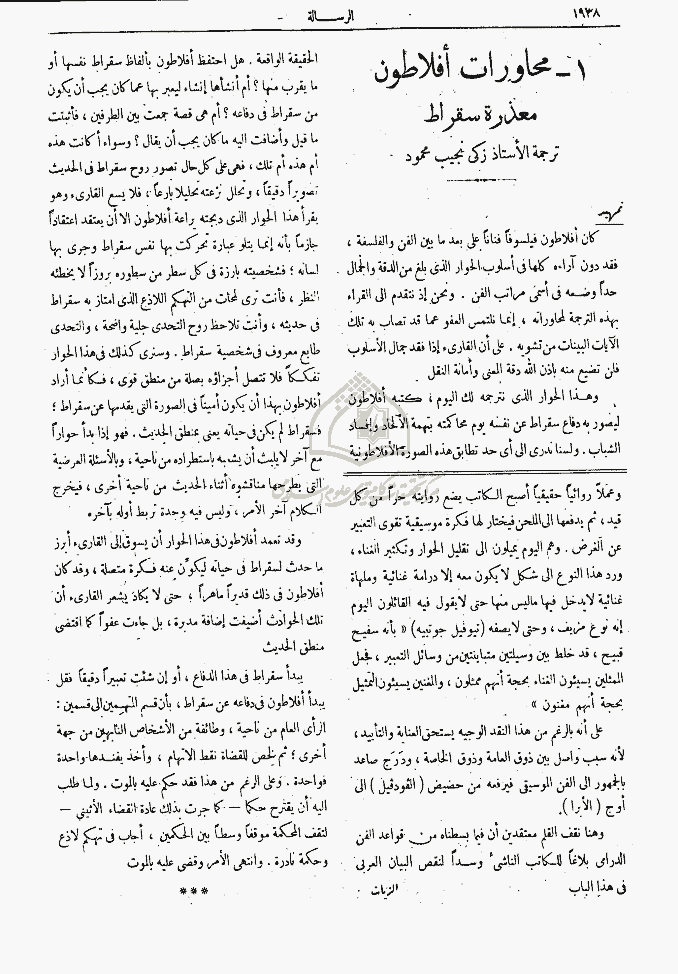 ١٩٣٨
الرسالة
١ - محاورات أفلاطون
معذرة سقراط
ترجمة الأستاذ زكي نجيب محمود
تمهيد
كان أفلاطون فيلسوفاً فناناً على بعد ما بين الفن والفلسفة ،
فقد دون آراءه كلها فى أسلوب الحوار الذى بلغ من الدقة والجمال
حداً وضعه فى أسمى مراتب الفن . ونحن إذ نتقدم الى القراء
بهذه الترجمة لمحاوراته ، إنما نلتمس العفو عما قد تصاب به تلك
الآيات البينات من تشويه . على أن القارىء إذا فقد جمال الأسلوب
فلن تضيع منه باذن الله دقة المعنى وأمانة النقل
وهذا الحوار الذى نترجمه لك اليوم ، كتبه أفلاطون
ليصور به دفاع سقراط عن نفسه يوم محاكمته بتهمة الالحاد وإفساد
الشباب . ولسنا ندرى الى أى حد تطابق هذه الصورة الأفلاطونية
الحقيقة الواقعة . هل احتفظ أفلاطون بألفاظ سقراط نفسها أو
ما يقرب منها ؟ أم أنشأها إنشاء ليعبر بها عما كان يجب أن يكون
من سقراط فى دفاعه ؟ أم هى قصة جمعت بين الطرفين ، فأثبتت
ما قيل وأضافت اليه ما كان يجب أن يقال ؟ وسواء أكانت هذه
أم هذه أم تلك ، فهى على كل حال تصور روح سقراط فى الحديث
تصويراً دقيقاً ، وتحلل نزعته تحليلا بارعاً ، فلا يسع القارىء وهو
يقرأ هذا الحوار الذى دبجته براعة أفلاطون الا أن يعتقد اعتقاداً
جازماً بأنه إنما يتلو عبارة تحركت بها نفس سقراط وجرى بها
لسانه ؛ فشخصيته بارزة فى كل سطر من سطوره بروزاً لا يخطئه
النظر ، فأنت ترى لمحات من التهكم اللاذع الذى امتاز به سقراط
فى حديثه ، وأنت تلاحظ روح التحدى جلية واضحة ، والتحدى
طابع معروف فى شخصية سقراط . وسترى كذلك فى هذا الحوار
تفككاً فلا تتصل أجزاؤه بصلة من منطق قوى ، فكأنما أراد
أفلاطون بهذا أن يكون أميناً فى الصورة التى يقدمها عن سقراط ؛
فسقراط لم يكن فى حياته يعنى بمنطق الحديث . فهو إذا بدأ حواراً
مع آخر لا يلبث أن يشعبه باستطراده من ناحية ، وبالأسئلة العرضية
التى يطرحها مناقشوه أثناء الحديث من ناحية أخرى ، فيخرج
الكلام آخر الأمر ، وليس فيه وحدة تربط أوله بآخره
وقد تعمد أفلاطون فى هذا الحوار أن يسوق إلى القارىء أبرز
ما حدث لسقراط فى حياته ليكون عنه فكرة متصلة ، وقد كان
أفلاطون فى ذلك قديراً ماهراً ؛ حتى لا يكاد يشعر القارىء أن
تلك الحوادث أضيفت إضافة مدبرة ، بل جاءت عفواً كما اقتضى
منطق الحديث
يبدأ سقراط فى هذا الدفاع ، أو إن شئت تعبيراً دقيقاً فقل
يبدأ أفلاطون فى دفاعه عن سقراط ، بأن قسم المتهمين إلى قسمين :
الرأى العام من ناحية ، وطائفة من الأشخاص النابهين من جهة
أخرى ؛ ثم لخص للقضاة نقط الاتهام ، وأخذ يفندها واحدة
فواحدة . وعلى الرغم من هذا فقد حكم عليه بالموت . ولما طلب
اليه أن يقترح حكما — كما جرت بذلك عادة القضاء الأثينى —
لتقف المحكمة موقفاً وسطاً بين الحكمين ، أجاب فى تهكم لاذع
وحكمة نادرة . وانتهى الأمر وقضى عليه بالموت
* * *
وعملا روائياً حقيقياً أصبح الكاتب يضع روايته حراً من كل
قيد ، ثم يدفعها الى الملحن فيختار لها فكرة موسيقية تقوى التعبير
عن الغرض . وهم اليوم يميلون الى تقليل الحوار وتكثير الغناء ،
ورد هذا النوع الى شكل لا يكون معه إلا درامة غنائية وملهاة
غنائية لا يدخل فيها ما ليس منها حتى لا يقول فيه القائلون اليوم
إنه نوع مزيف ، وحتى لا يصفه (تيوفيل جوتييه) « بأنه سفيح
قبيح ، قد خلط بين وسيلتين متباينتين من وسائل التعبير ، فجعل
الممثلين يسيئون الغناء بحجة أنهم ممثلون ، والمغنين يسيئون التمثيل
بحجة أنهم مغنون »
على أنه بالرغم من هذا النقد الوجيه يستحق العناية والتأييد ،
لأنه سبب واصل بين ذوق العامة وذوق الخاصة ، ودَرَج صاعد
بالجمهور الى الفن الموسيقى فيرفعه من حضيض ( الڤودڤيل ) الى
أوج ( الأبرا ) .
وهنا نقف القلم معتقدين أن فيما بسطناه من قواعد الفن
الدرامى بلاغاً للكاتب الناشئ وسداً لنقص البيان العربى
فى هذا الباب
الزيات